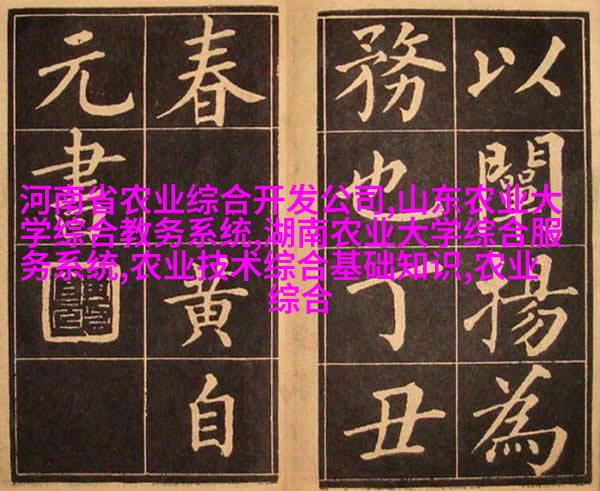 以闡揚為
務也丁丑
春黄自
元書
河南省农业综合开发公司,山东农业大
学综合教务系统,湖南农业大学综合服
务系统,农业技术综合基础知识,农业
综合